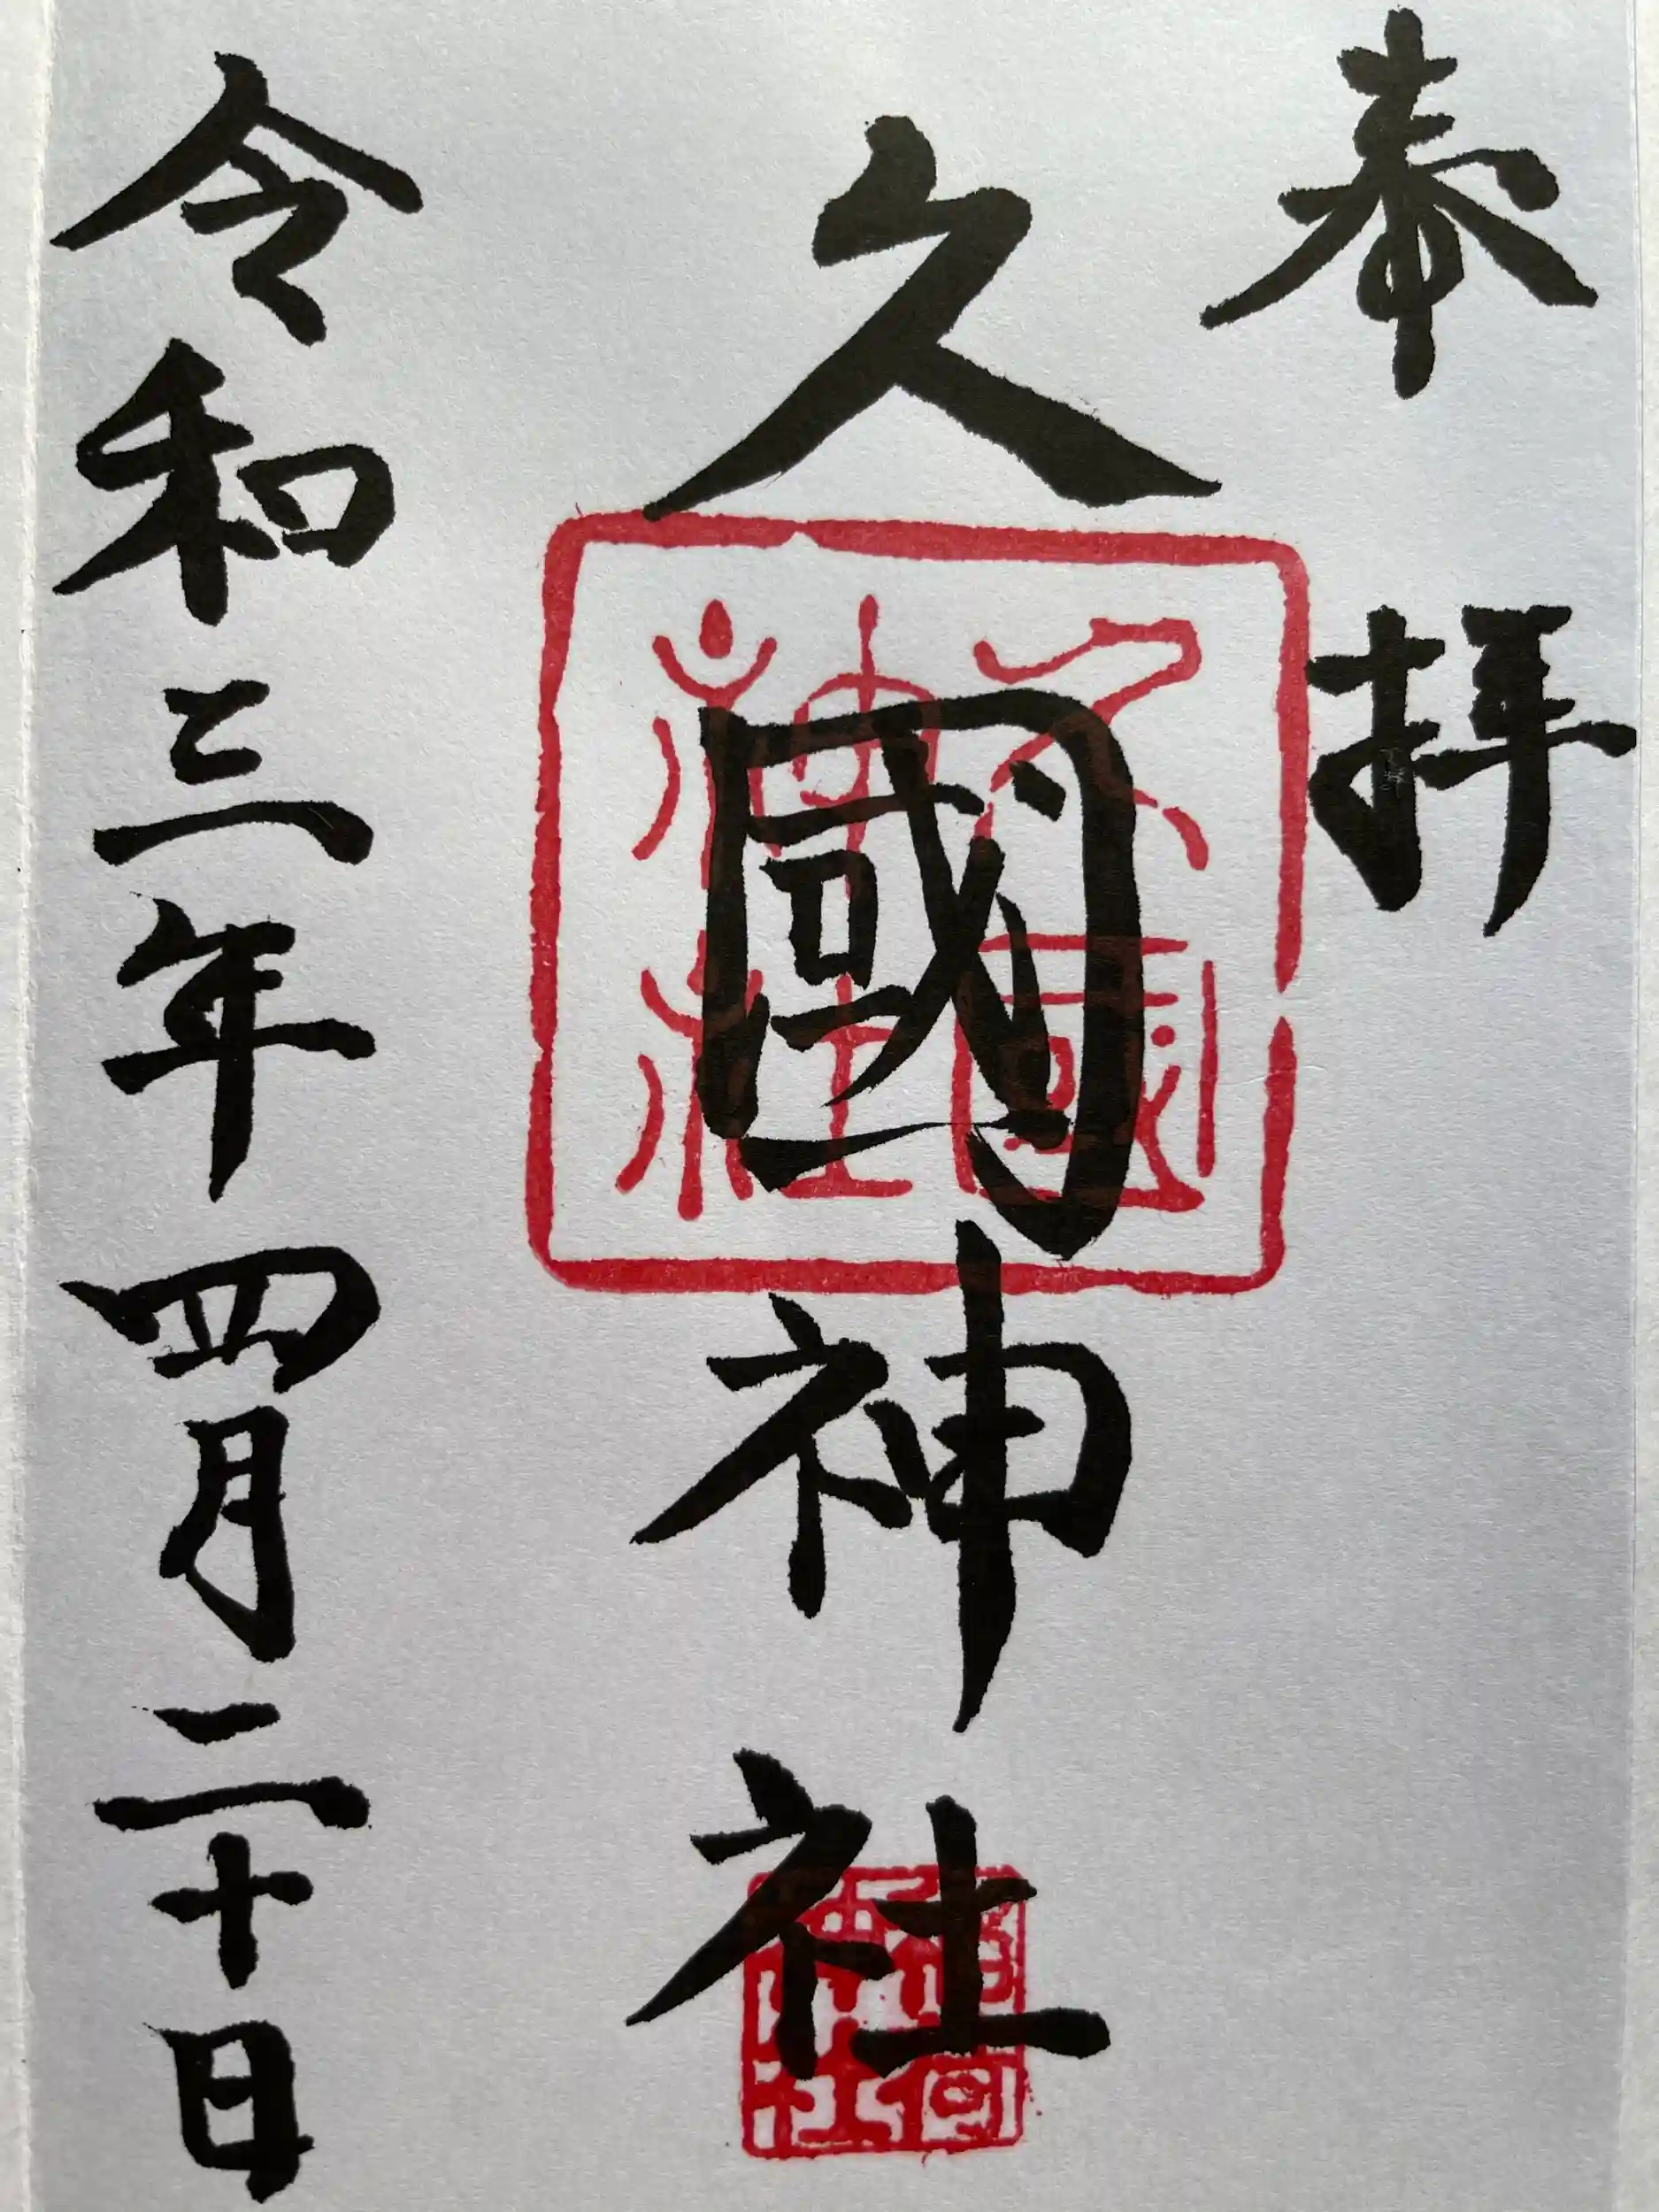 奉拝
久國神社
久國神社
令和三年四月二十日